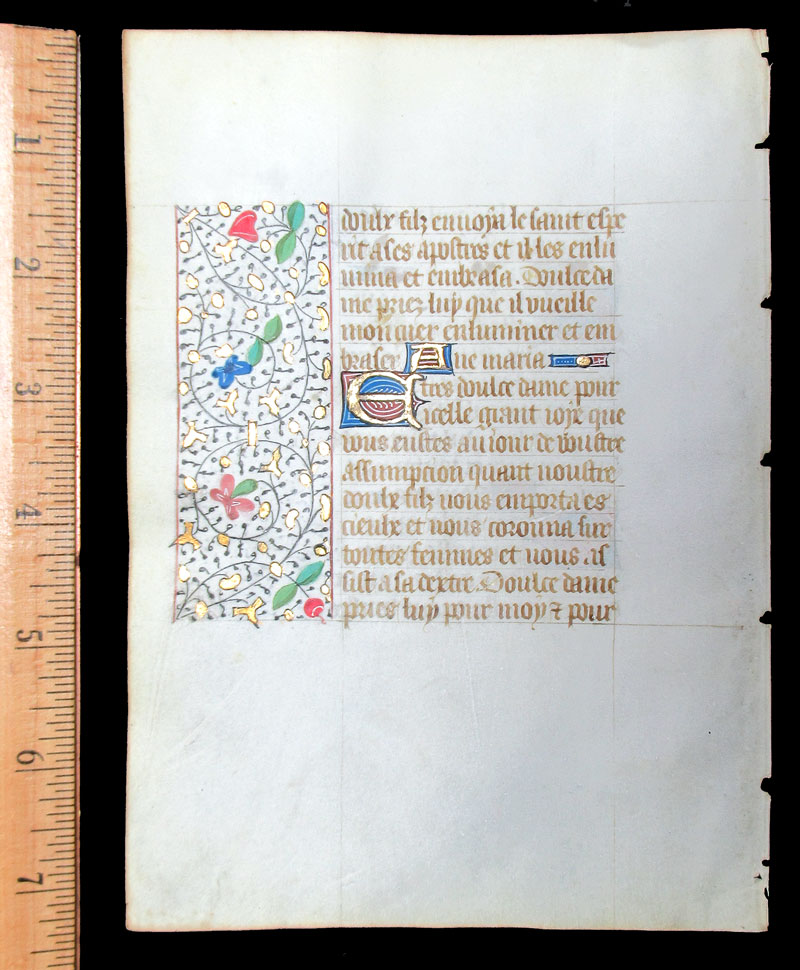 doulx filz envoya le saint espe
rit a ses apostres et il les enlu
mina et embrasa. Doulce da
me priez luy que il vueille
mon cuer enluminer et em
braser. Ave maria
E tres doulce dame pour
icelle grant ioye que
vous eustes au iour de voustre
assumpcion quant voustre
doulx filz vous emporta es
cieulx et vous coronna sur
toutes femmes et vous as
sist a sa dextre. Doulce dame
pries luy pour moy ⁊ pour
1
2
3
4
5
6
7